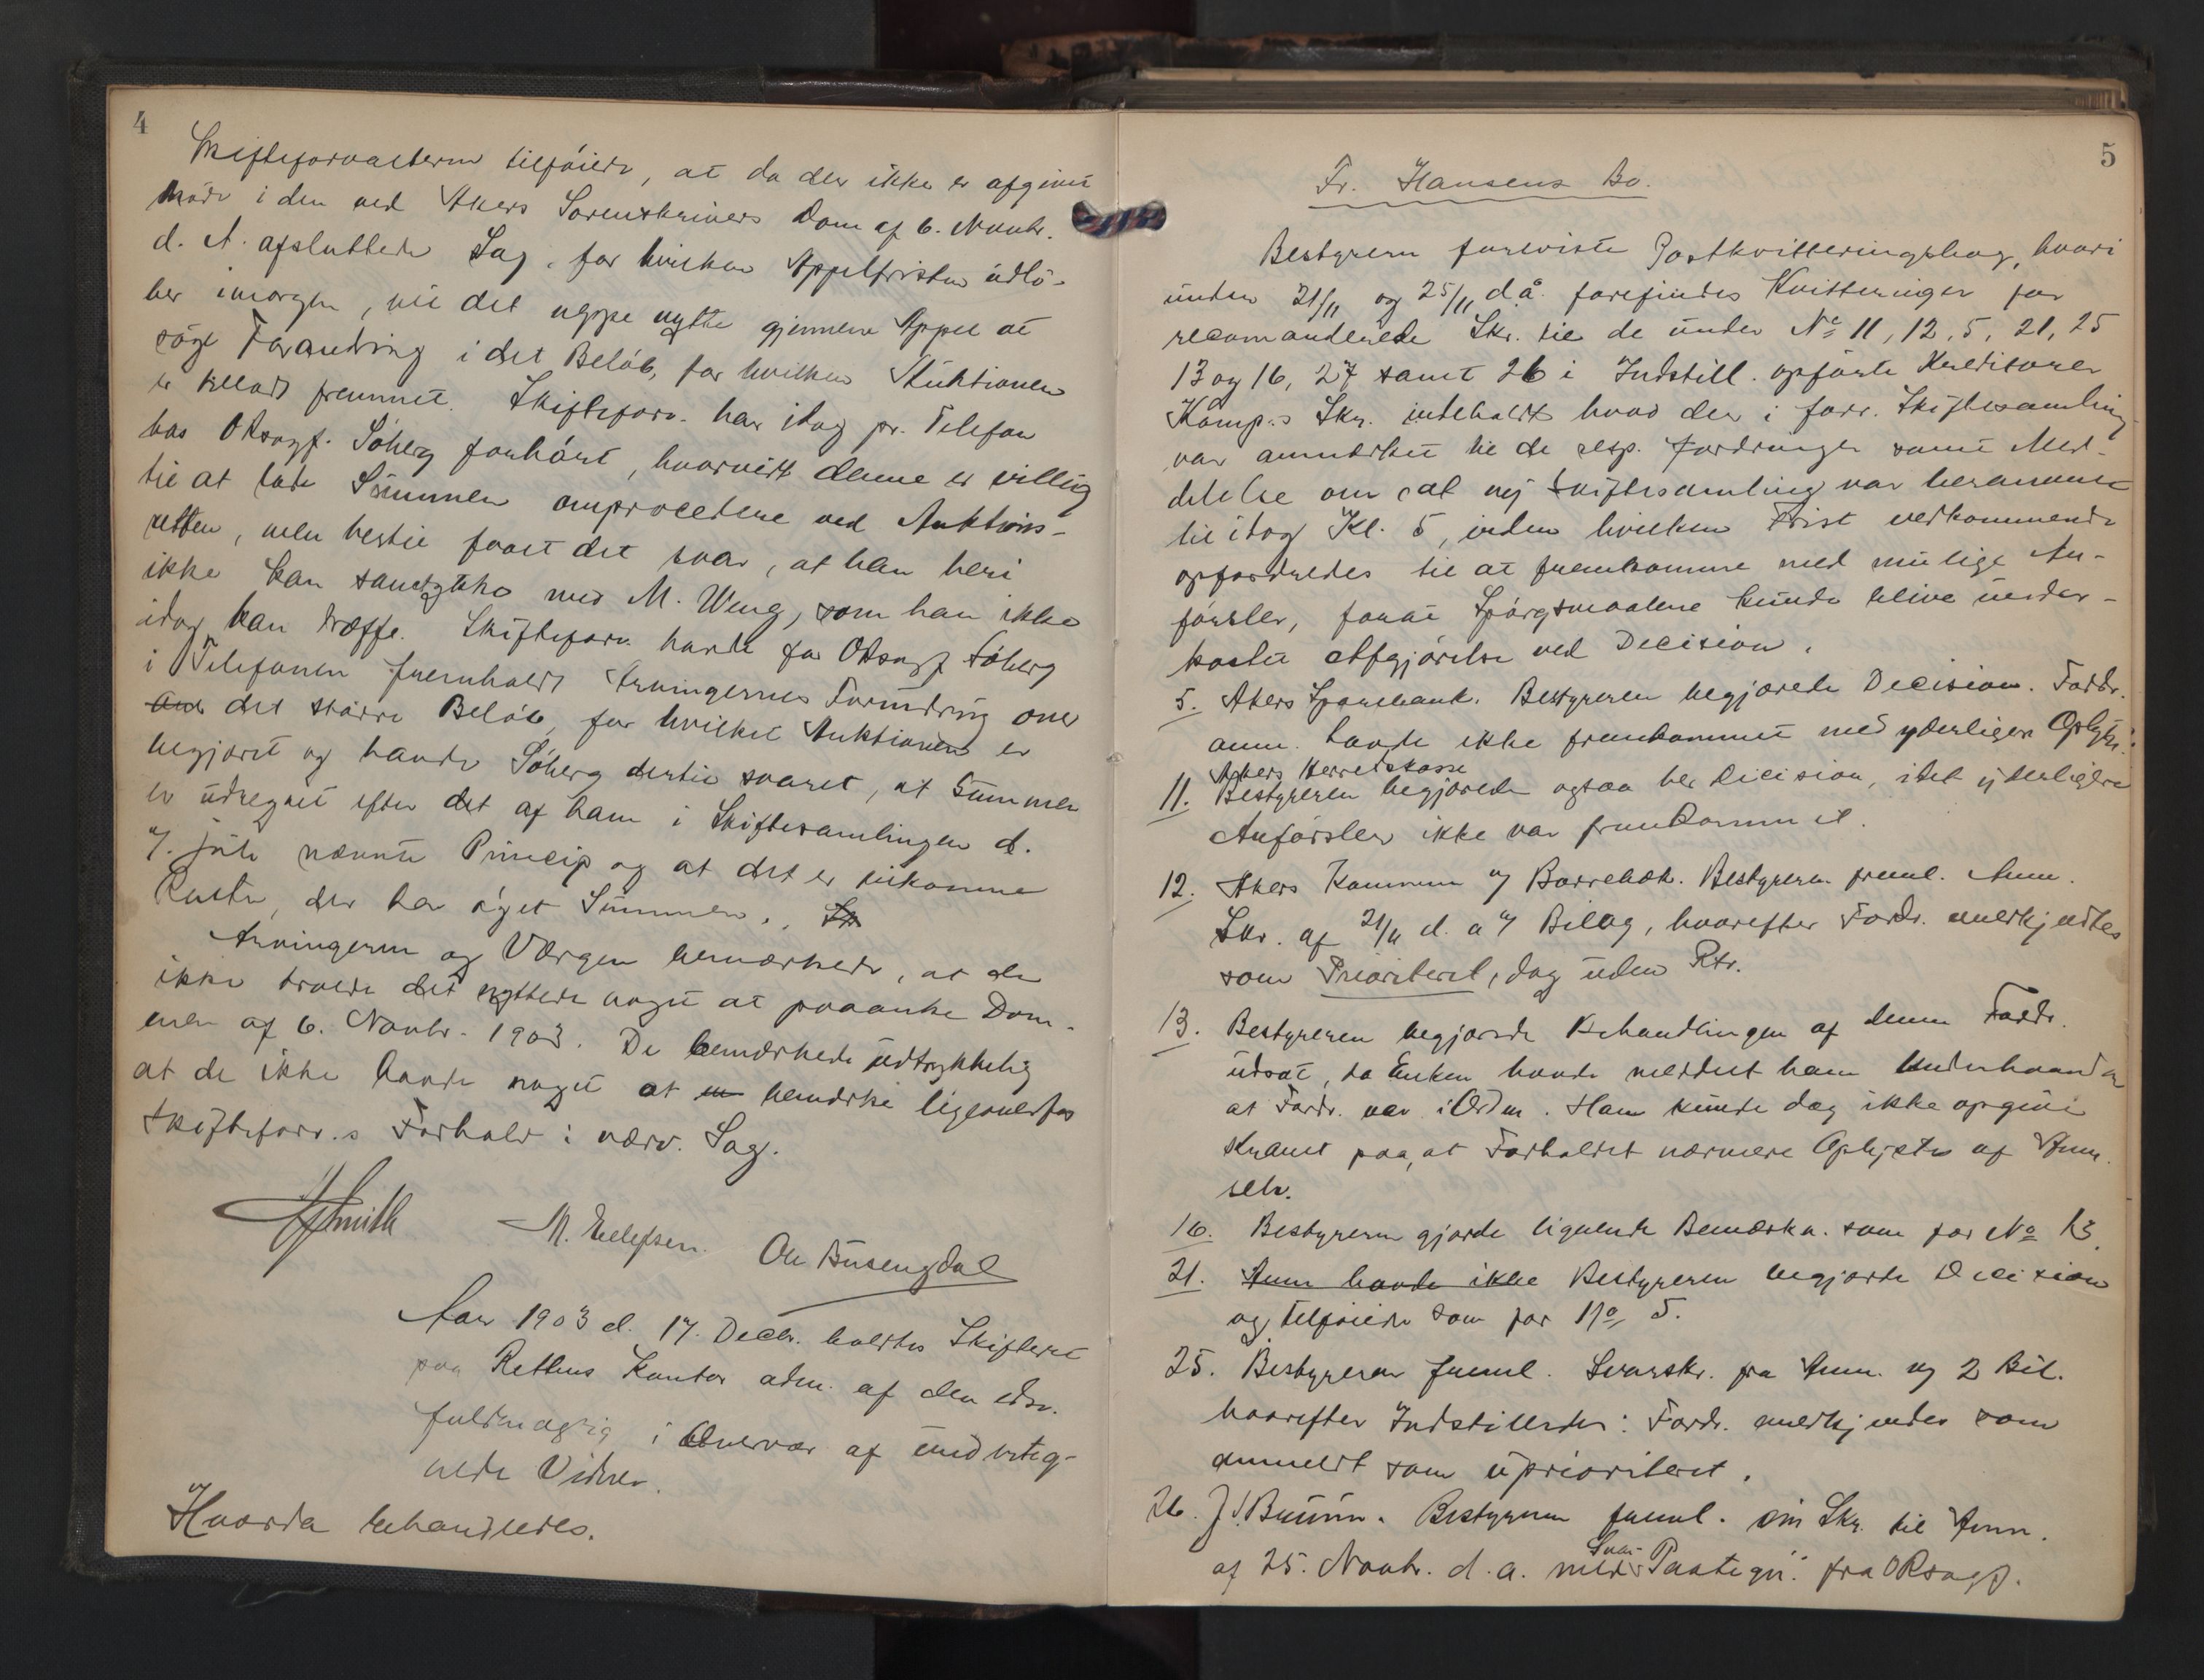 4
Skifteforvalteren tilføiede, at da der ikke er afgivet
Møde i den ved Akers Sorenskrivers Dom af 6. Novbr.
d. A. afsluttede Sag, for hvilken Appelfristen udlø-
ber imorgen, vil det neppe nytte gjennem Appel at
søge Forandring i det Beløb, for hvilken Auktionen
er krævet fremmet. Skifteforv. har idag pr. Telefon
hos ORsagf. Søberg forhørt, hvorvidt denne er villig
til at lade Summen omprocedere ved Auktions-
retten, men hertil faaet det svar, at han heri
ikke kan samtykke med M. Weng, som han ikke
idag kan træffe. Skifteforv. havde for ORsagf Søberg
i Telefonen fremholdt Arvingernes Forundring over
det større Beløb, for hvilket Auktionen er
begjæret og havde Søberg dertil svaret, at Summen
er udregnet efter det af ham i Skiftesamlingen d.
7. Juli nævnte Princip og at det er tilkomne
Renter, der har øget Summen.
Arvingerne og Værgen bemærkede, at de
ikke troede det nyttede noget at paaanke Dom-
men af 6. Novbr. 1903. De bemærkede udtrykkelig
at de ikke havde noget at bemærke ligeoverfor
Skifteforv.s Forhold i nærv. Sag.
Smith M. Ellefsen. Ole Busengdal
Aar 1903 d. 17. Decbr. holdtes Skifteret
paa Rettens Kontor adm. af den edsv.
fuldmægtig i Overvær af underteg-
nede Vidner.
Hvorda behandledes.
5
Fr. Hansens Bo.
Bestyreren foreviste Postkvitteringsbog, hvori
under 21/11 og 25/11 d.å. forefindes Kvitteringer for
recomanderede Skr. til de under No 11, 12, 5, 21, 25
13 og 16, 27 samt 26 i Indstill. opførte Kreditorer
Komp.s Skr. indeholdt hvad der i forr. Skiftesamling
var anmærket til de resp. Fordringer samt Med-
delelse om at ny Skiftesamling var berammet
til idag Kl. 5, inden hvilken Frist vedkommende
opfordredes til at fremkomme med mulige An-
førsler, forat Spørgsmaalene kunde blive under-
kastet Afgjørelse ved Decision.
5. Akers Sparebank. Bestyreren begjærede Decision. Fordr.
anm. havde ikke fremkommet med yderligere Oplysn.
Akers Herredskasse
11. Bestyreren begjærede ogsaa her Decision, idet yderligere
Anførsler ikke var fremkommet.
12. Akers Kommune v/ Borrebæk. Bestyreren freml. Anm.
Skr. af 21/11 d. a. og Bilag, hvorefter Fordr. anerkjendtes
som Prioriteret, dog uden Rtr.
13. Bestyreren begjærede Behandlingen af denne Fordr.
udsat, da Enken havde meddelt ham underhaanden
at Fordr. var i Orden. Han kunde dog ikke opgive
Kravet paa, at Forholdet nærmere Oplystes af Anm.
selv.
16. Bestyreren gjorde lignende Bemærkn. som for No 13.
21. Anm havde ikke Bestyreren begjærte Decision
og tilføiede som for No 5.
25. Bestyreren freml. Svarskr. fra Anm. og 2 Bil.
hvorefter Indstilledes: Fordr. anerkjendes som
anmeldt som uprioriteret.
26. J. Buunn. Bestyreren freml. sin Skr. til Anm.
af 25. Novbr. d. a. med Svar-Paategn. fra ORsagf.